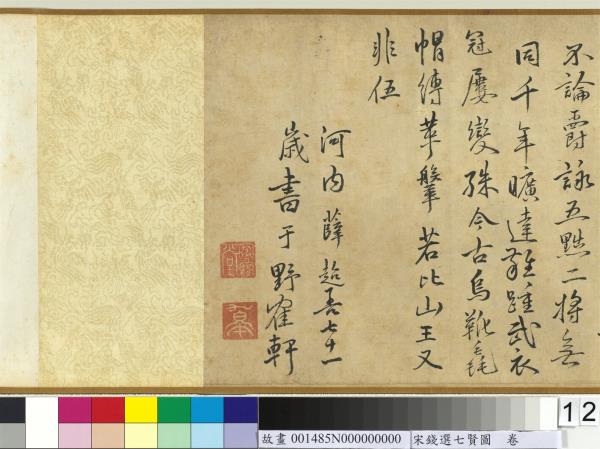 不論爵詠五點二將無
同千年曠達難踵武衣
冠屢變殊今古烏靴氊
帽縛華鞶若比山王又
非伍
河內薛超吾七十一
歲書于野雀軒
12
故畫 001485N000000000
宋錢選七賢圖 卷